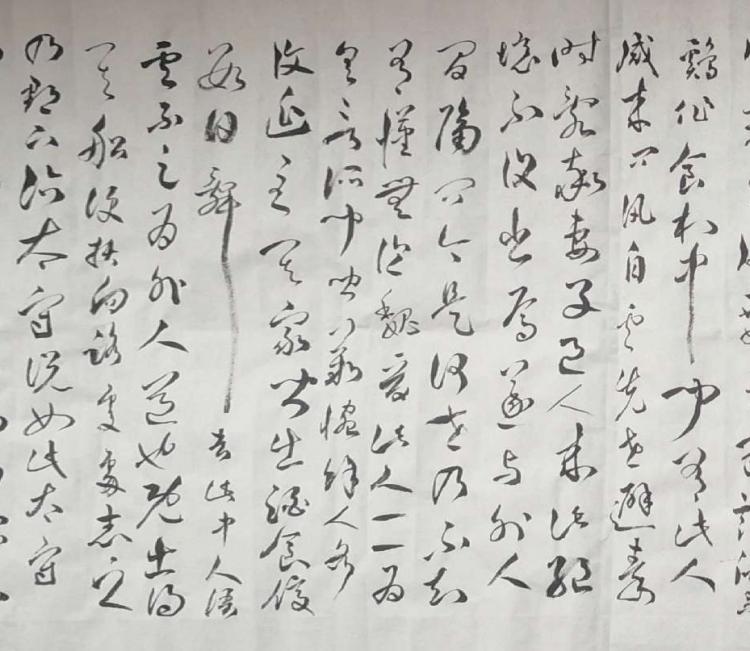 鷄作食村中聞有此人
咸來問訊自云先世避秦
時亂率妻子邑人來此絕
境不復出焉遂與外人
間隔問今是何世乃不知
有漢無論魏晉此人一一為
具言所聞皆歎惋餘人各
復延至其家皆出酒食停
數日辭去此中人語
云不足為外人道也既出得
其船便扶向路處處志之
及郡下詣太守說如此太守